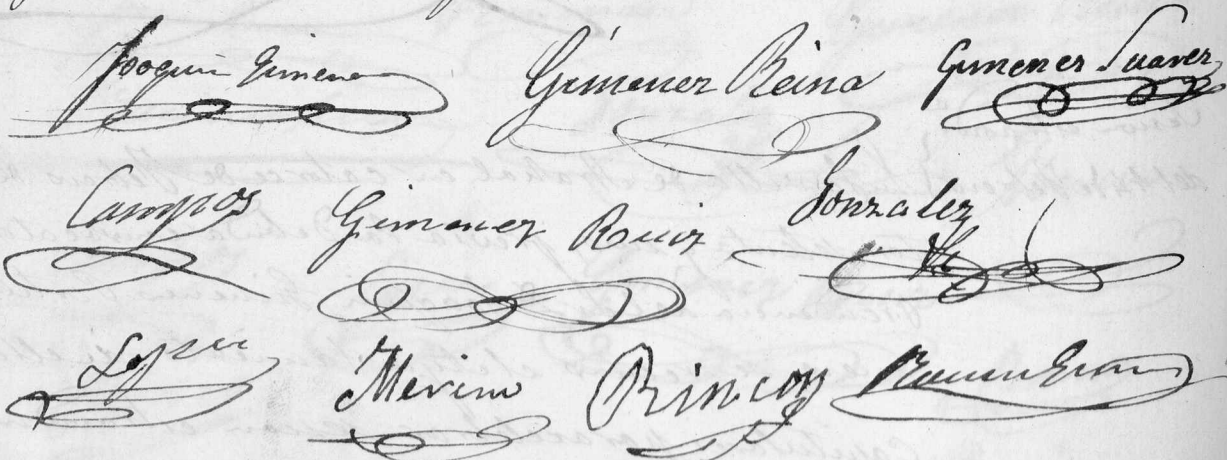 Joaquin Gimenez Gimenez Reina Gimenez Suarez
Campos Gimenez Ruiz Gonzalez
Lopez Merino Rincon